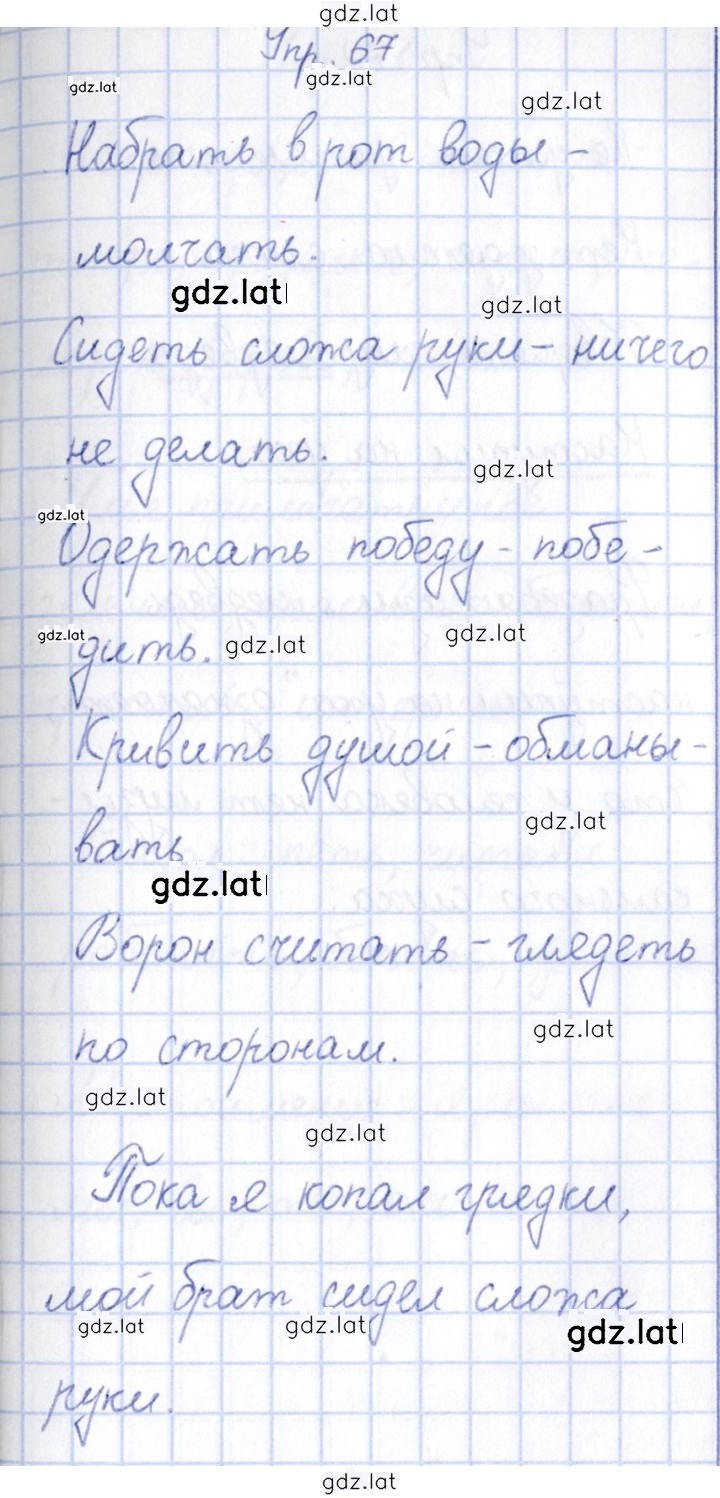 gdz.lat
Упр. 67
gdz.lat
gdz.lat
gdz.lat
Набрать в рот воды -
молчать.
gdz.lat
gdz.lat
Сидеть сложа руки - ничего
не делать.
gdz.lat
gdz.lat
Одержать победу - побе -
дить.
gdz.lat
gdz.lat
gdz.lat
Кривить душой - обманы -
вать
gdz.lat
gdz.lat
Ворон считать - глядеть
по сторонам.
gdz.lat
gdz.lat
gdz.lat
Пока я копал грядки,
мой брат сидел сложа
gdz.lat
gdz.lat
gdz.lat
руки.
gdz.lat